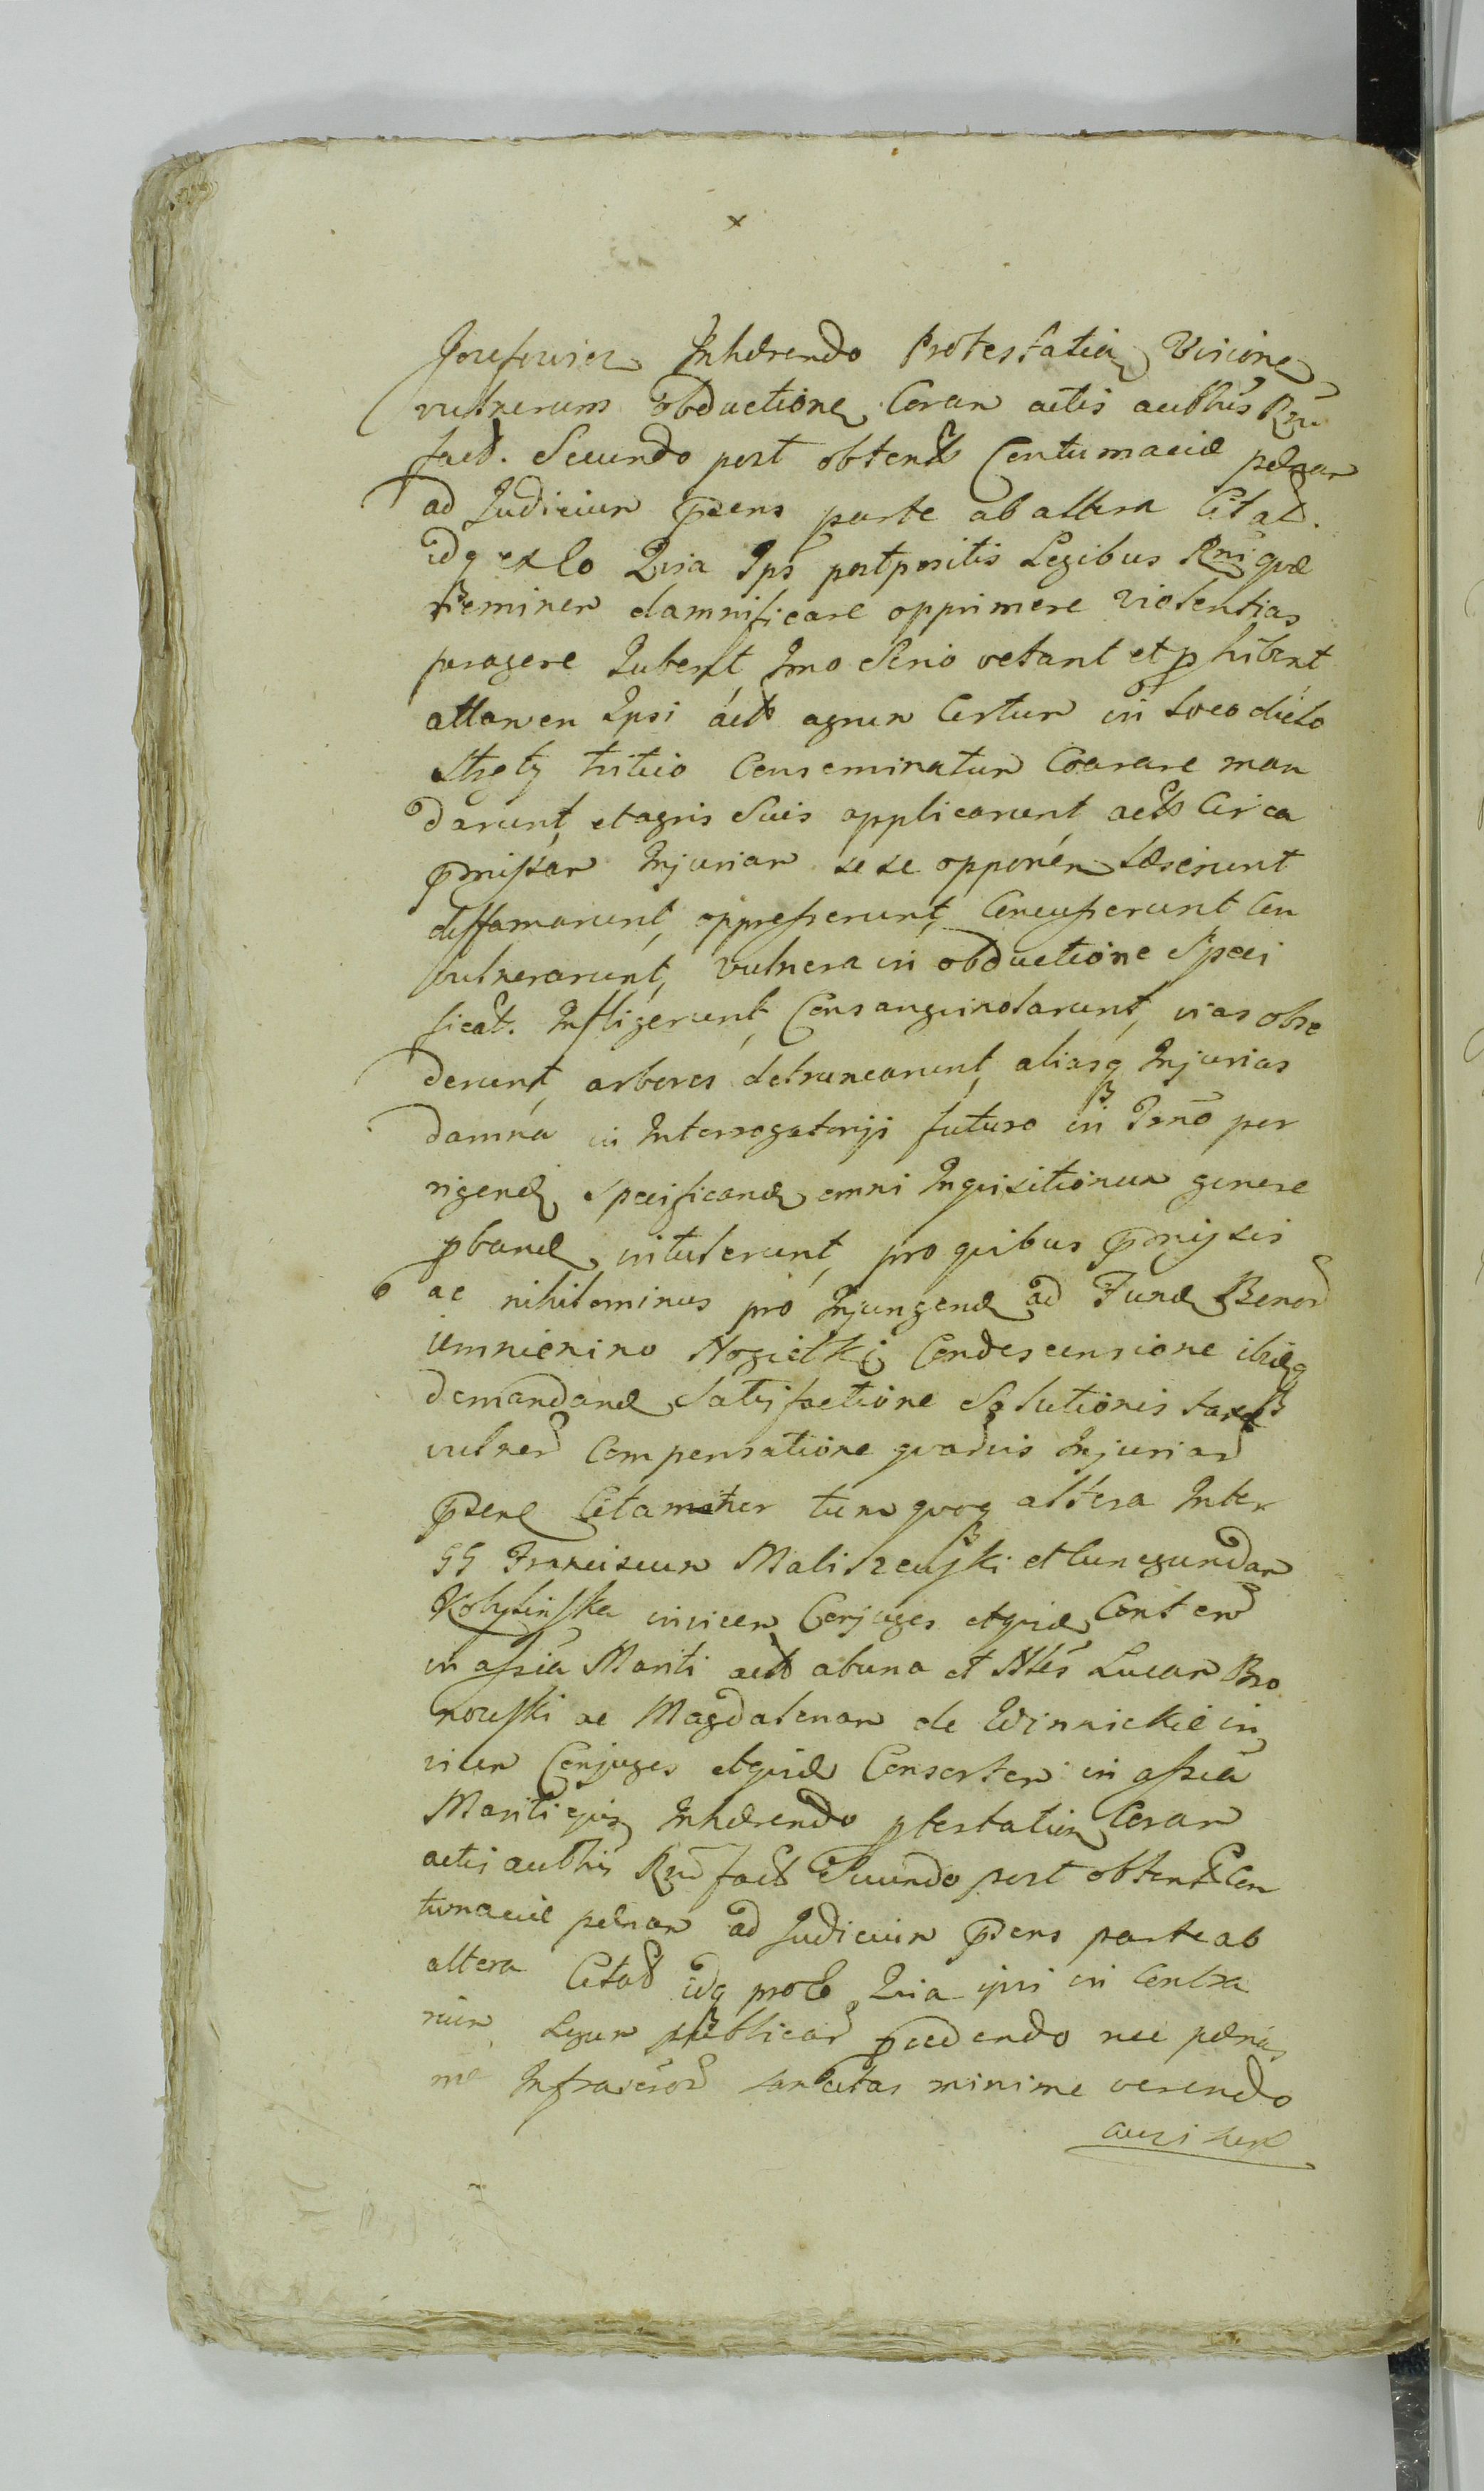 x
Jozefowicz Inhærendo Protestation Visione
vulnerum obductione Coram actis authis Rni
fact. Secundo post obtent Contumaciæ pænam
ad Judicium pzens parte ab altera Citat.
idq exeo Quia Ips postpositis Legibus Rni quæ
neminem damnificare opprimere violentias
peragere Iubent Imo Serio vetant et phibent
attamen Ipsi act agrum Certum in loco dicto
tritico Conseminatum Coarare man
darunt et agris Suis applicarunt act Circa
pmissam Injuriam se se opponen læserunt
diffamarunt, oppresserunt, Concusserunt Con
vulnerarunt, vulnera in obductione Speci
ficat. Infligerunt, Consanguinolarunt, vias obse
derunt, arbores detruncarunt, aliasq Injurias
damna in Interrogatorijs futuro in Trno por
rigend Specificand omni Inquisitionum genere
pband intulerunt, pro quibus pmissis
ac nihilominus pro Injungend ad Fund Bonor
Condescensione ibidq
demandand Satisfactione Solutionis taxæ
vulner Compensatione quarvis Injuriar
pzens Citamther tum quoq altera Inter
GG Franciscum Maliszewski et Cunegundam
Kobylinska invicem Conjuges etquid Contoral
in assia Mariti act ab una et Nles Lucam Bro
nowski ac Magdalenam de Winnickie in
vicem Conjuges etquid Consortem in assia
Mariti ejus Inhærendo ptestation Coram
actis authis Rni fact Secundo post obtent Con
tumaciæ pænam ad Judicium pzens parte ab
altera Citat idq pro eo Quia ipsi in Contra
rium Legum publicar pcedendo nec pænas
Infrascror sancitas minime verendo